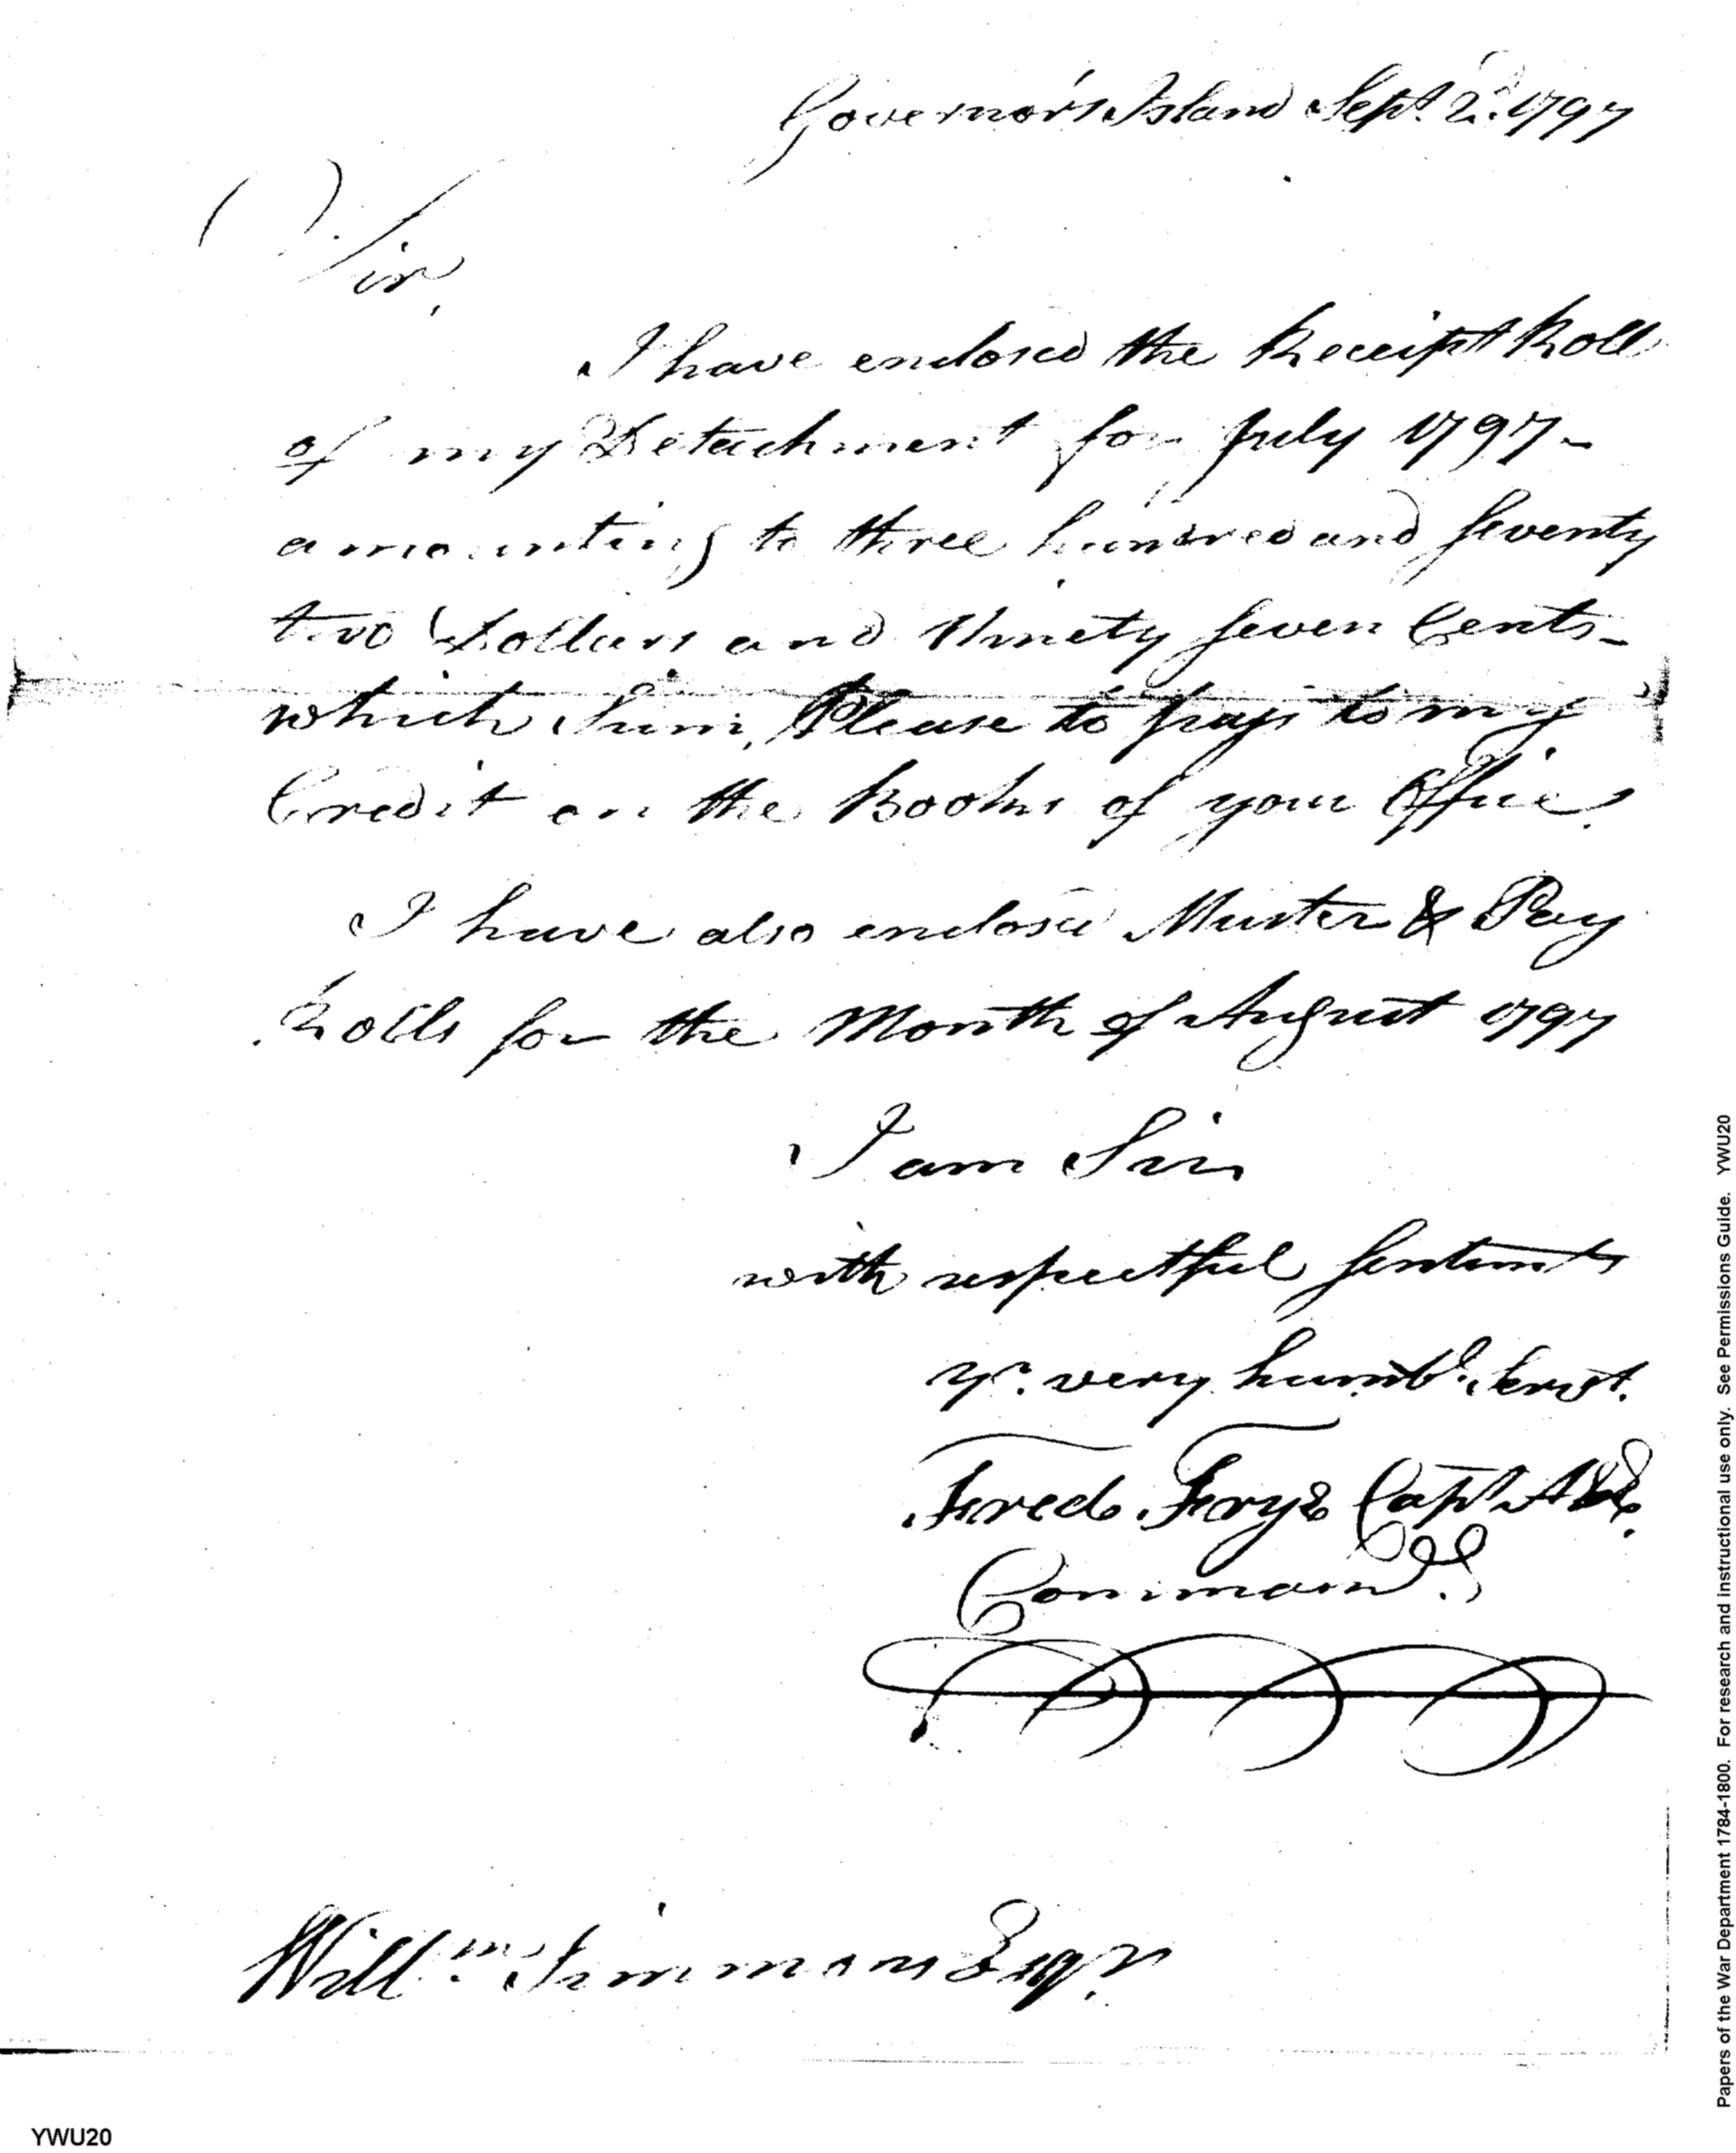 Governor's Island Sept. 2d. 1797
Sir,
I have enclosed the Receipt Roll
of my Detachment for July 1797-
amounting to three hundred and seventy
two Dollars and Ninety seven Cents-
which sum, Please to pass to my
Credit on the Books of your Office.
I have also enclosed Muster & Pay
Rolls for the Month of August 1797
I am Sir,
with respectful sentiments
yr. very humbl. servt.
Fredk. Frye Capt. A&E.
Commandg.
Willm. Simmons Esqr.
Papers of the War Department 1784-1800. For research and instructional use only. See Permissions Guide. YWU20
YWU20